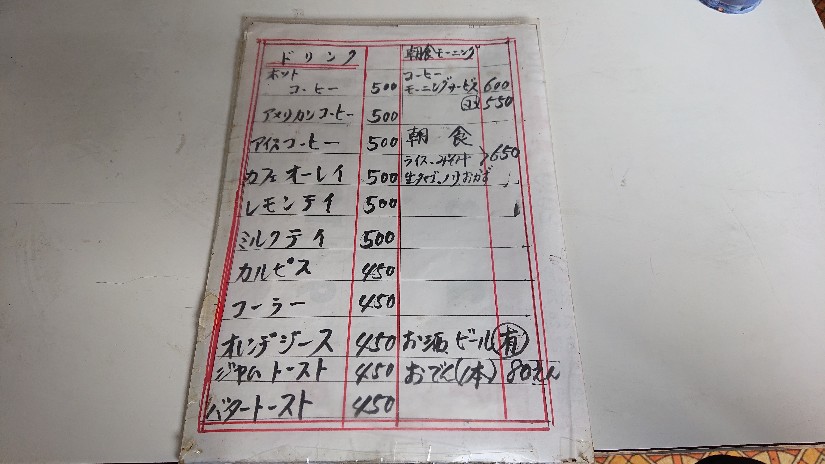 ドリンク
ホット
コーヒー 500
アメリカンコーヒー 500
アイスコーヒー 500
カフェオーレイ 500
レモンテイ 500
ミルクテイ 500
カルピス 450
コーラー 450
オレンヂジース 450
ジャムトースト 450
バタートースト 450
朝食モーニング
コーヒー
モーニングサービス 600
550
朝食
ライス、みそ汁 650
生タマゴ、ノリ、おかず
お酒、ビール 有
おでん(1本) 80えん